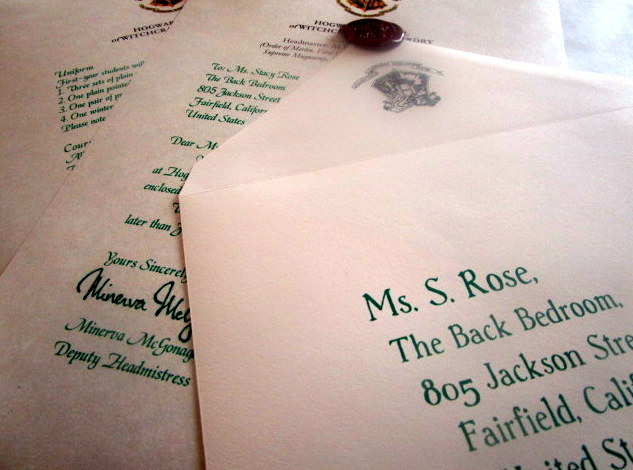 HOGWAR
of WITCHCR
Uniform
First-year students wil
1. Three sets of plain
2. One plain pointe
3. One pair of p
4. One winter
Please note
Cour
HOGW
of WITCHCRA
DRY
Headmaster: A
(Order of Merlin, First
Supreme Mugwump,
To: Ms. Stacy Rose
The Back Bedroom
805 Jackson Street
Fairfield, Califor
United States
Dear M
at Hog
enclosed
later than J
Yours Sincerely
Minerva McG
Minerva McGonag
Deputy Headmistress
Ms. S. Rose,
The Back Bedroom,
805 Jackson Stre
Fairfield, Calif
United St